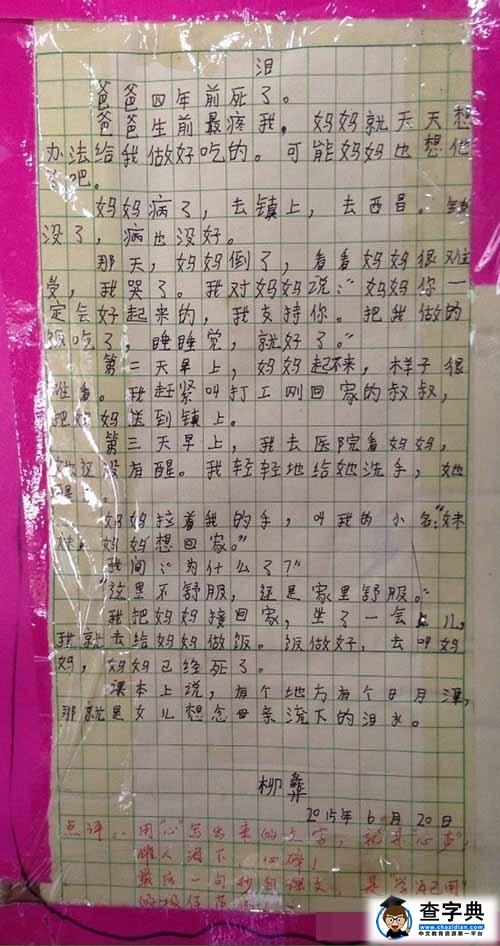 泪
爸爸四年前死了。
爸爸生前最疼我，妈妈就天天想
办法给我做好吃的。可能妈妈也想他
了吧。
妈妈病了，去镇上，去西昌。钱
没了，病也没好。
那天，妈妈倒了，看看妈妈很难
受，我哭了。我对妈妈说：“妈妈你一
定会好起来的，我支持你。把我做的
饭吃了，睡睡觉，就好了。”
第二天早上，妈妈起不来，样子很
难看。我赶紧叫打工刚回家的叔叔，
把妈妈送到镇上。
第三天早上，我去医院看妈妈，
她还没有醒。我轻轻地给她洗手，她
醒
妈妈拉着我的手，叫我的小名：“妹
妹，妈妈想回家。”
我问：“为什么了？”
“这里不舒服，还是家里舒服。”
我把妈妈接回家，坐了一会儿，
我就去给妈妈做饭。饭做好，去叫妈
妈，妈妈已经死了。
课本上说，有个地方有个日月潭，
那就是女儿想念母亲流下的泪水。
柳彝
2015年6月20日
点评：用“心”写出来的文字，就是“心声”，
催人泪下 心碎！
最后一句抄自课文，是“学为己用”
查字典
www.chazidian.com
中文教育资源第一平台